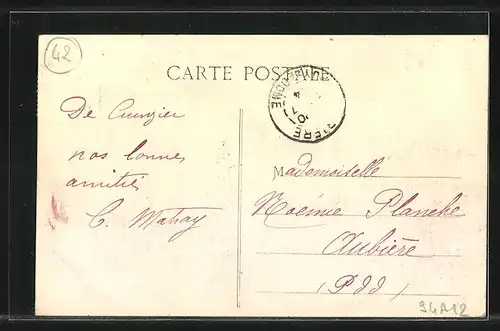 42
CARTE POSTALE
De Cunzier
nos bonnes
amitiés
C. Mathay
Mademoiselle
Noémie Planche
Aubière
(Pdd)
94A12